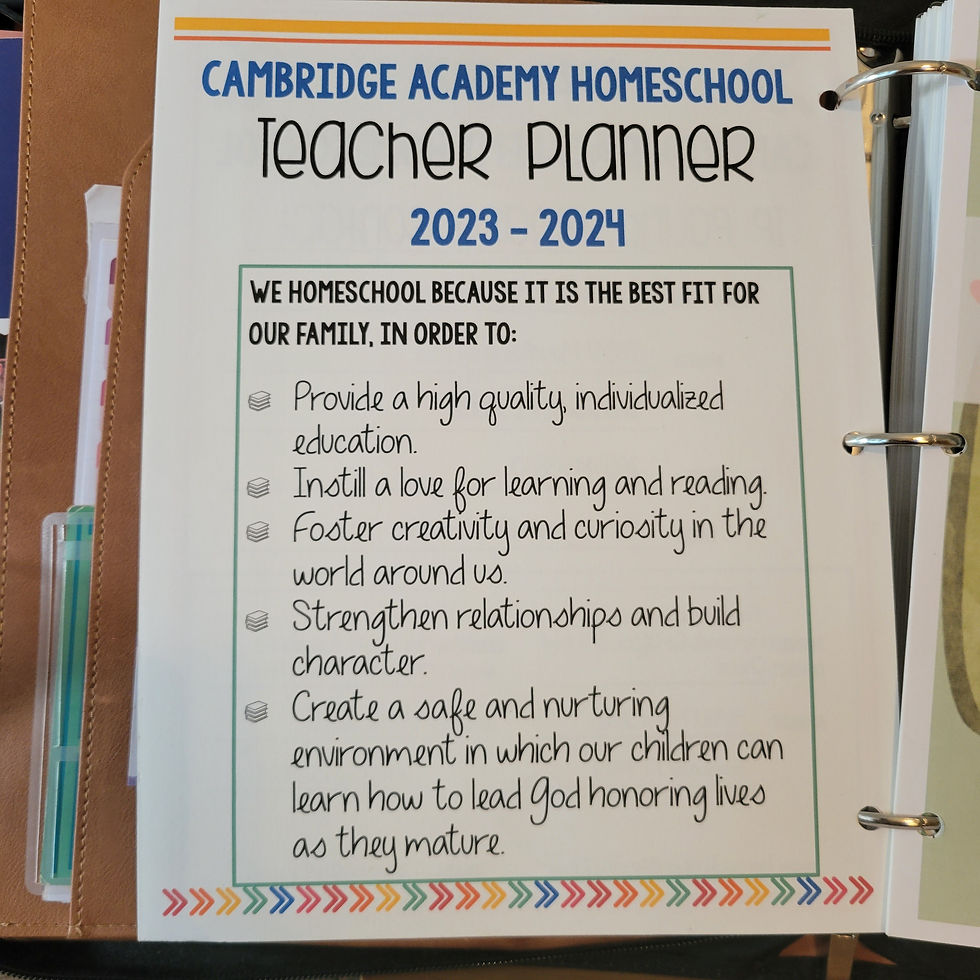 CAMBRIDGE ACADEMY HOMESCHOOL
Teacher Planner
2023 - 2024
WE HOMESCHOOL BECAUSE IT IS THE BEST FIT FOR
OUR FAMILY, IN ORDER TO:
Provide a high quality, individualized
education.
Instill a love for learning and reading.
Foster creativity and curiosity in the
world around us.
Strengthen relationships and build
character.
Create a safe and nurturing
environment in which our children can
learn how to lead God honoring lives
as they mature.